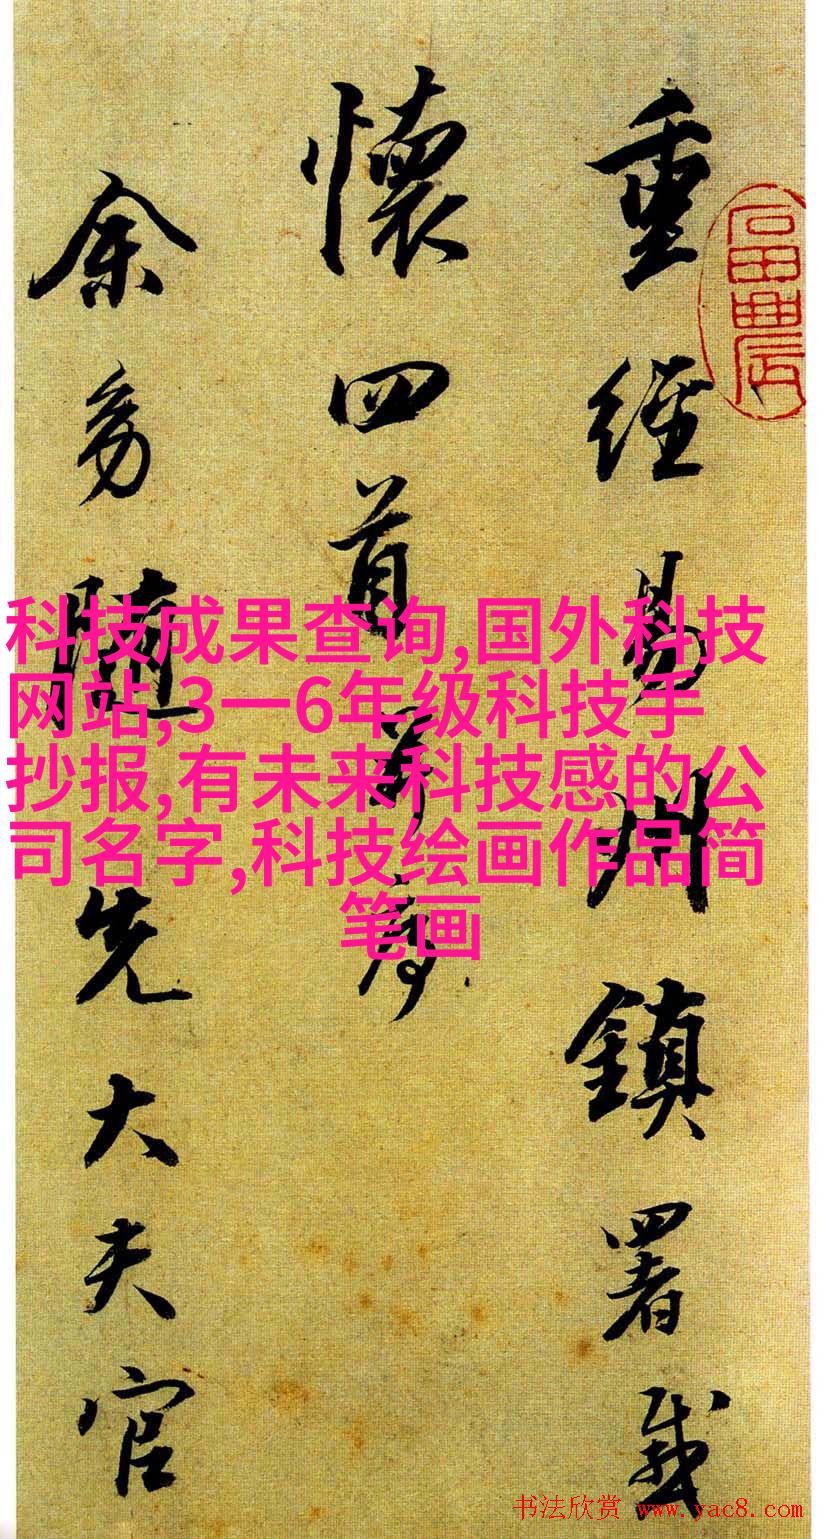 重經易州鎮署感
懷四首并序
余易隨先大夫官
科技成果查询,国外科技
网站,3一6年级科技手
抄报,有未来科技感的公
司名字,科技绘画作品简
笔画
书法欣赏 www.yac8.com